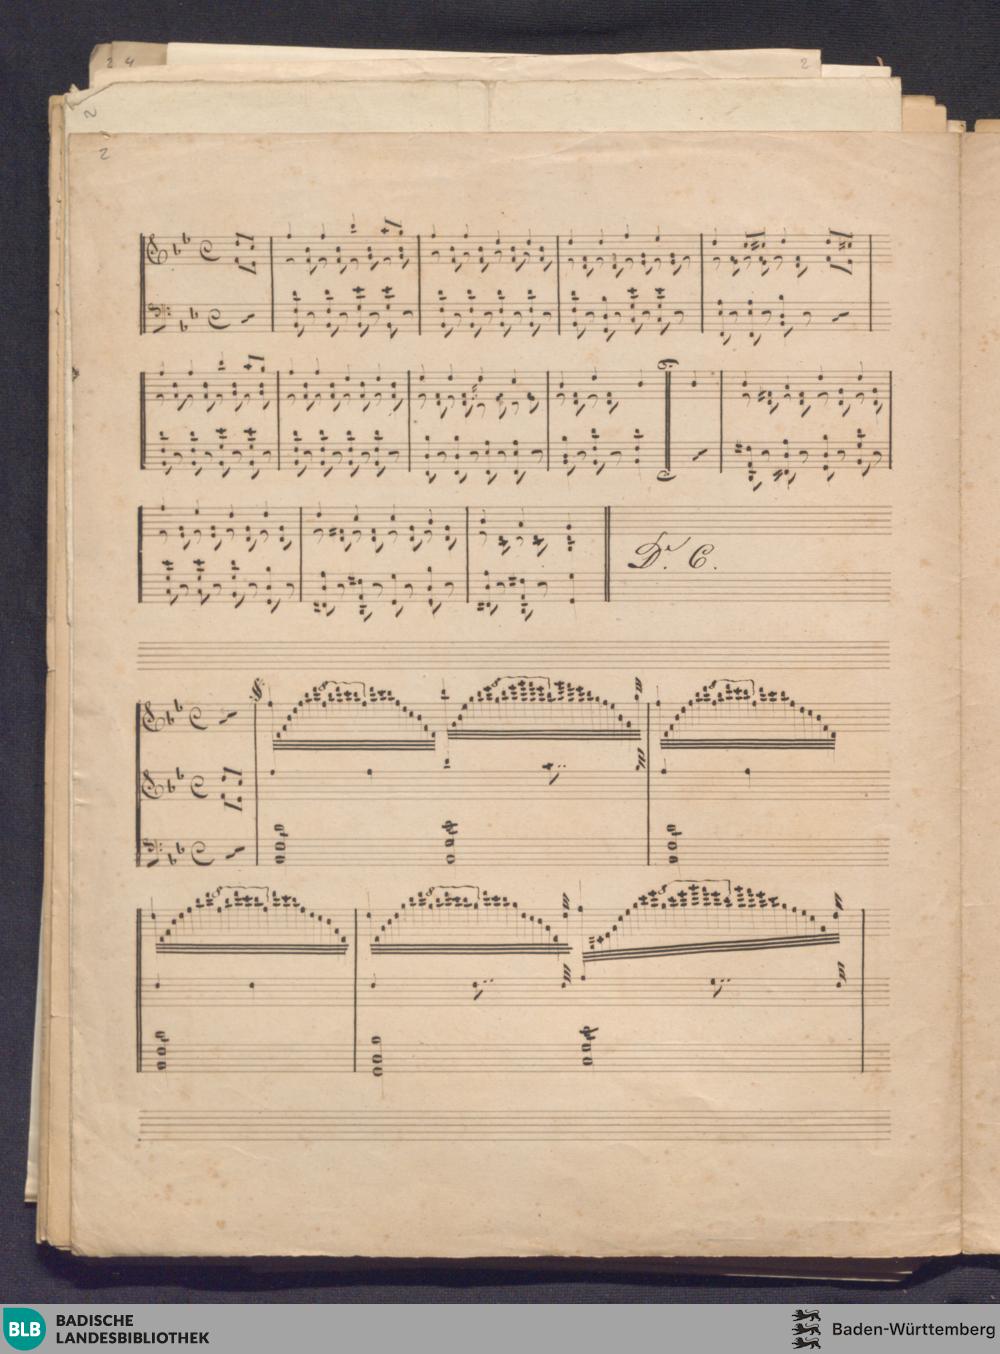 2 4
2
2
2
D. C.
BLB BADISCHE
LANDESBIBLIOTHEK
Baden-Württemberg